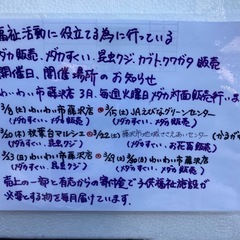 福祉活動に役立てる為に行っている
メダカ販売、メダカすくい、昆虫クジ、カブトクワガタ販売
開催日、開催場所のお知らせ
わいわい市藤沢店 3月、毎週火曜日メダカ対面販売行います
3/8(土)わいわい市藤沢店 3/15(土)JAえびなグリーンセンター
(メダカすくい、メダカ販売) (メダカすくい、メダカ販売)
3/20(木) 秋葉台マルシェ 3/22(土)藤沢市地域ささえあいセンター
(メダカすくい、昆虫クジ) (メダカすくい、お花苗販売)
3/23(日)わいわい市藤沢店 3/29(土)30(日)わいわい市藤沢店
(メダカすくい、昆虫クジ) (メダカすくい、メダカ販売)
売上の一部と有志からの寄付金で子供福祉施設が
必要とする物を毎月届けています。